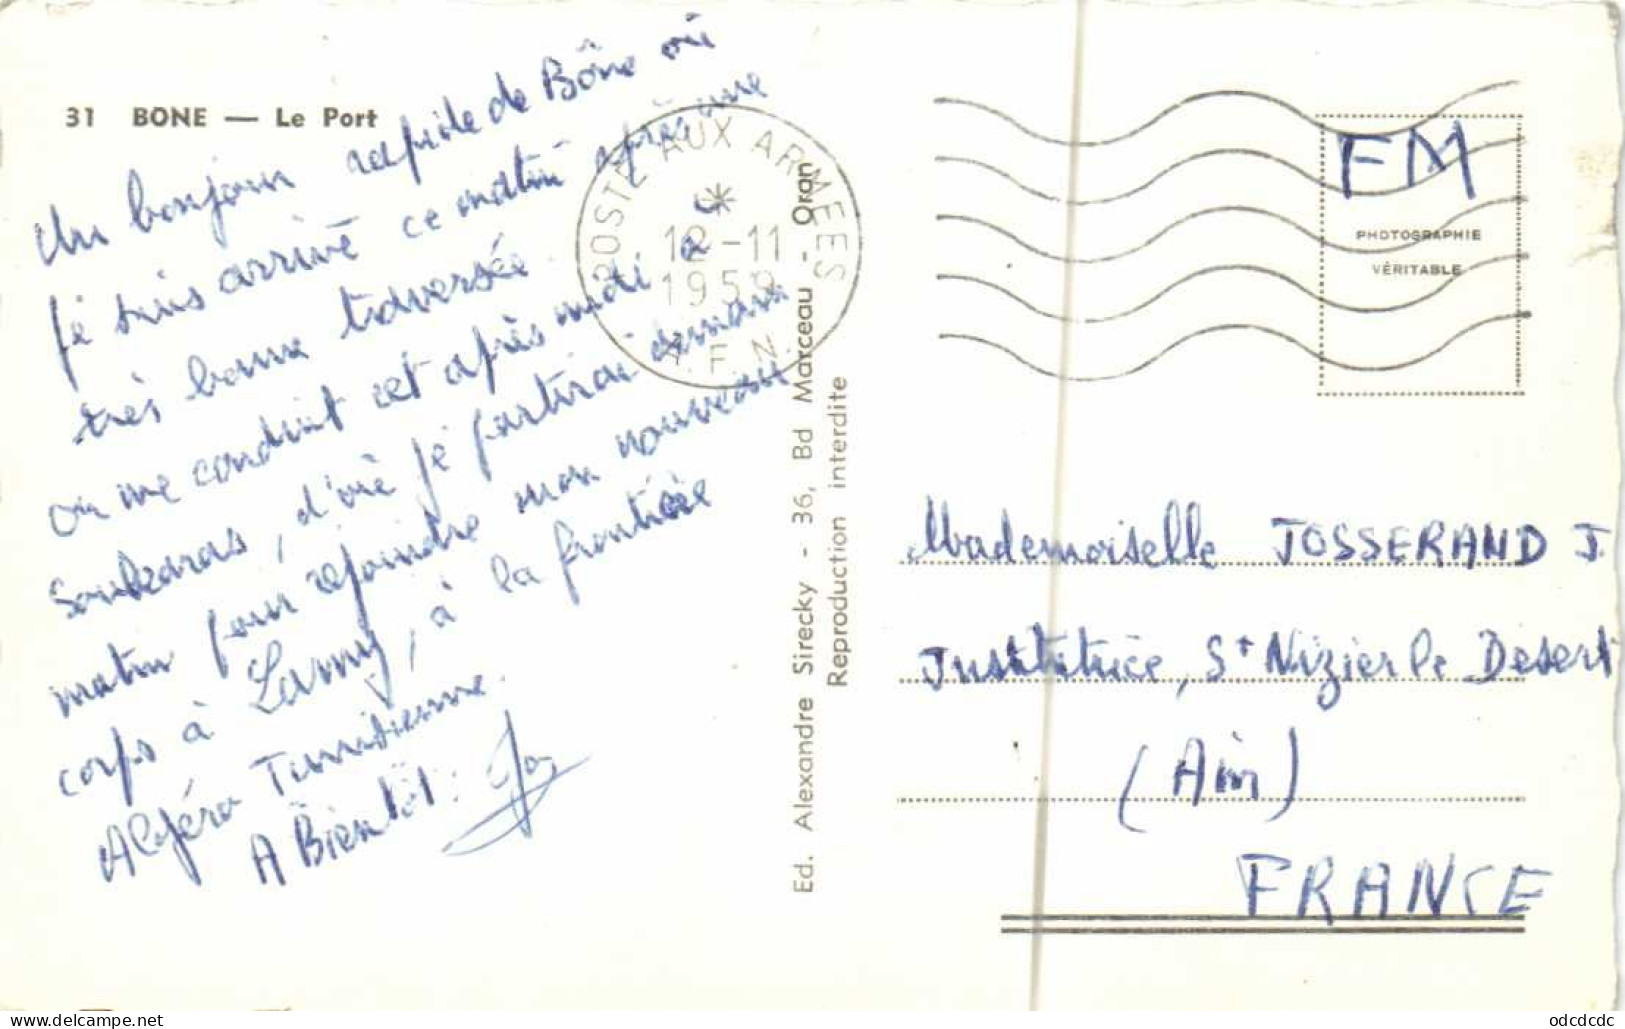 31 BONE — Le Port
Un bonjour rapide de Bône où
je suis arrivé ce matin après une
très bonne traversée.
On me conduit cet après midi à
Soukaras, d'où je partirai demain
matin pour rejoindre mon nouveau
corps à Lamy, à la frontière
Algéro Tunisienne.
A Bientôt.
POSTE AUX ARMEES
12-11
1959
A.F.N
Ed. Alexandre Sirecky - 36, Bd Marceau - Oran
Reproduction interdite
FM
PHOTOGRAPHIE
VÉRITABLE
Mademoiselle JOSSERAND J.
Institutrice, St Nizier le Desert
(Ain)
FRANCE
delcampe.net
odcdcdc